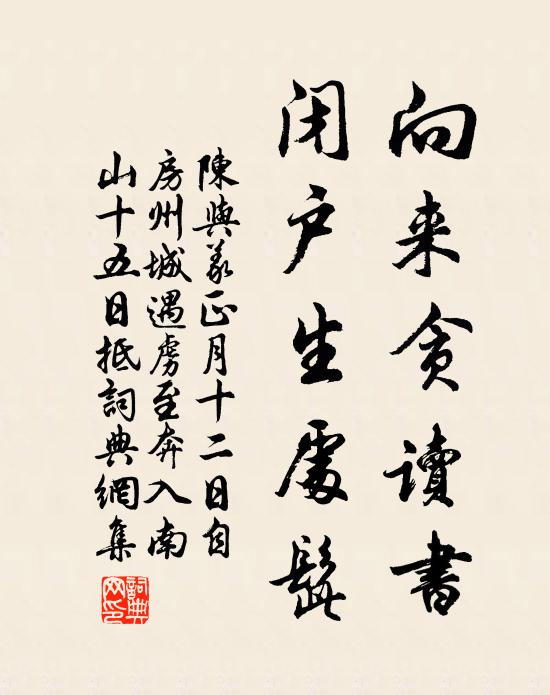 向来贪讀書
闭户生處髭
陳與義正月十二日自
房州城遇虜至奔入南
山十五日抵詞典網集
詞典网印